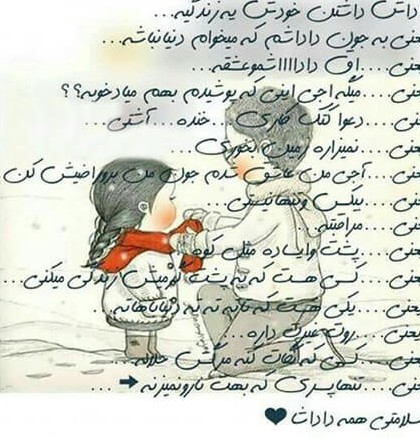 داشتن داداش خودش یه زندگیه...
یعنی به جون داداشم که میخوام دنیا نباشه...
یعنی....اون داداااااشمو عشقه...
یعنی....میگه اجی اینی که پوشیدم بهم میاد خوبه؟؟
یعنی....دعوا کتک کاری...خنده...آشتی...
یعنی....نمیزاره زمین بخوری...
یعنی....آجی من عاشق شدم جون من برو راضیش کن
یعنی....مراقبته...
یعنی....پشتت وایساده مثل کوه
یعنی....کسی هست که به پشت گرمیش زندگی میکنی...
یعنی....یکی هست که تا ته ته دنیا باهاته...
یعنی....روت غیرت داره...
یعنی....کسی که نگات کنه مرگش حلاله...
یعنی....تنها پسری که بهت نارو نمیزنه...
سلامتی همه داداشا